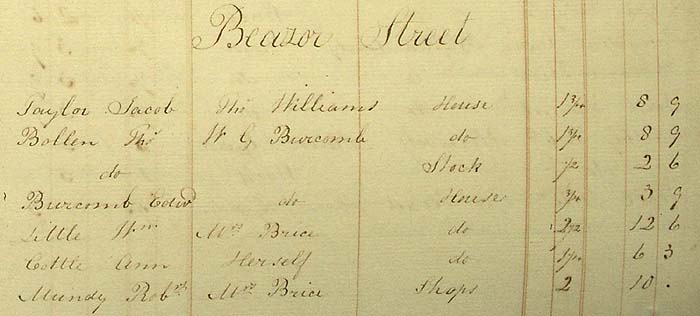 Beazor Street
Taylor Jacob Thos Williams House 1¾ 8 9
Bollen Thos W G Burcomb do 1¾ 8 9
do Stock ½ 2 6
Burcomb Edwd do House ¾ 3 9
Little Wm Mrs Brice do 2½ 12 6
Cottle Ann Herself do 1¼ 6 3
Mundy Robt Mrs Brice Shops 2 10 .